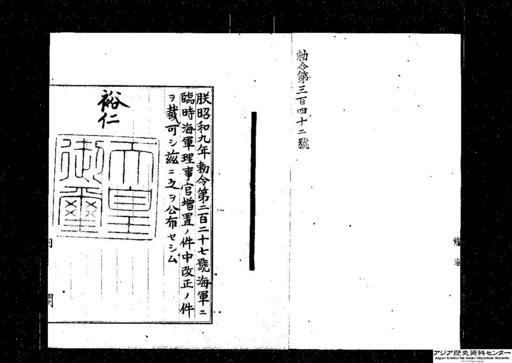 勅令第三百四十二號
朕昭和九年勅令第二百二十七號海軍ニ
臨時海軍理事官增置ノ件中改正ノ件
ヲ裁可シ茲ニ之ヲ公布セシム
裕仁
天皇
御璽
内閣
アジア歴史資料センター
Japan Center for Asian Historical Records